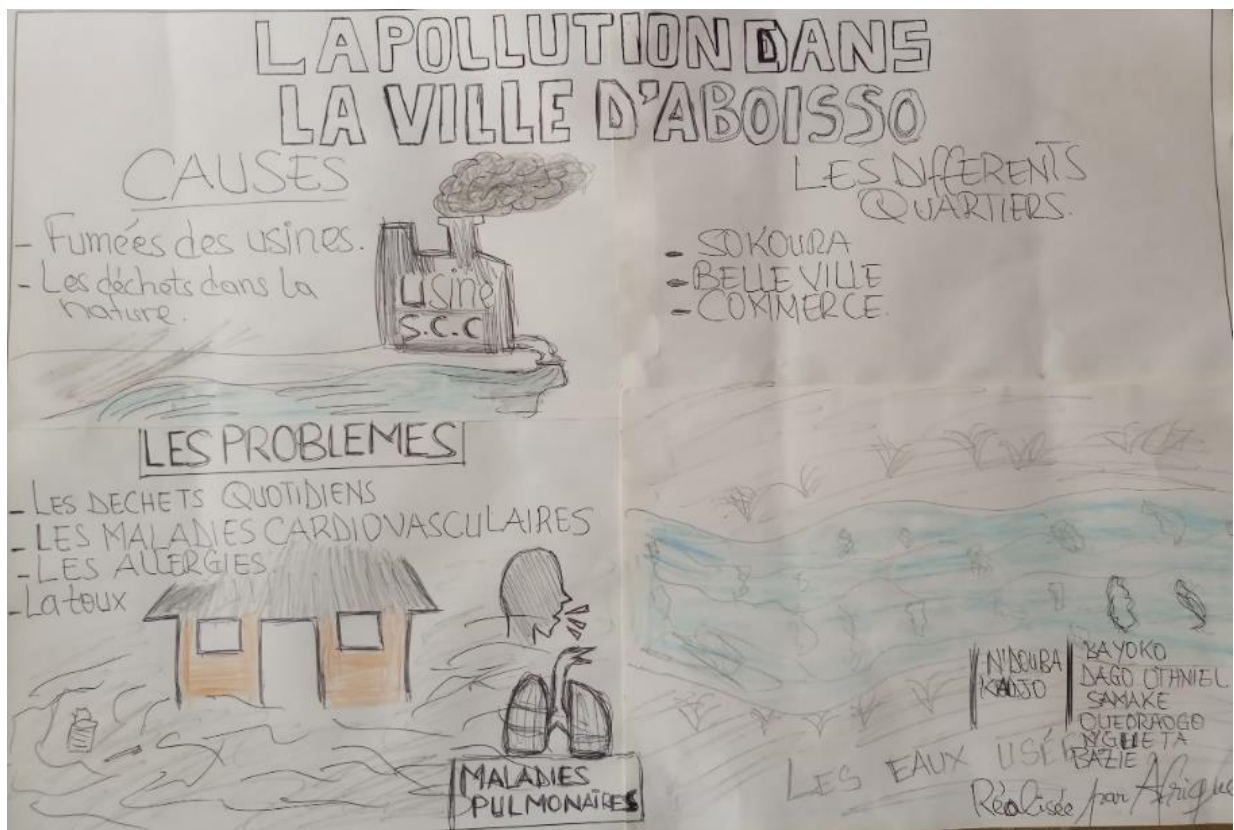 LA POLLUTION DANS
LA VILLE D'ABOISSO
CAUSES
- Fumées des usines.
- Les déchets dans la
nature.
usine
S.C.C
LES DIFFERENTS
QUARTIERS.
- SOKOURA
- BELLE VILLE
- COMMERCE.
LES PROBLEMES
- LES DECHETS QUOTIDIENS
- LES MALADIES CARDIOVASCULAIRES
- LES ALLERGIES.
- La toux
MALADIES
PULMONAIRES
N'DOUBA
KADJO
BAYOKO
DAGO OTHNIEL
SAMAKE
OUEDRAOGO
N'GUETA
BAZIE
LES EAUX USÉES
Réalisée par Afrique